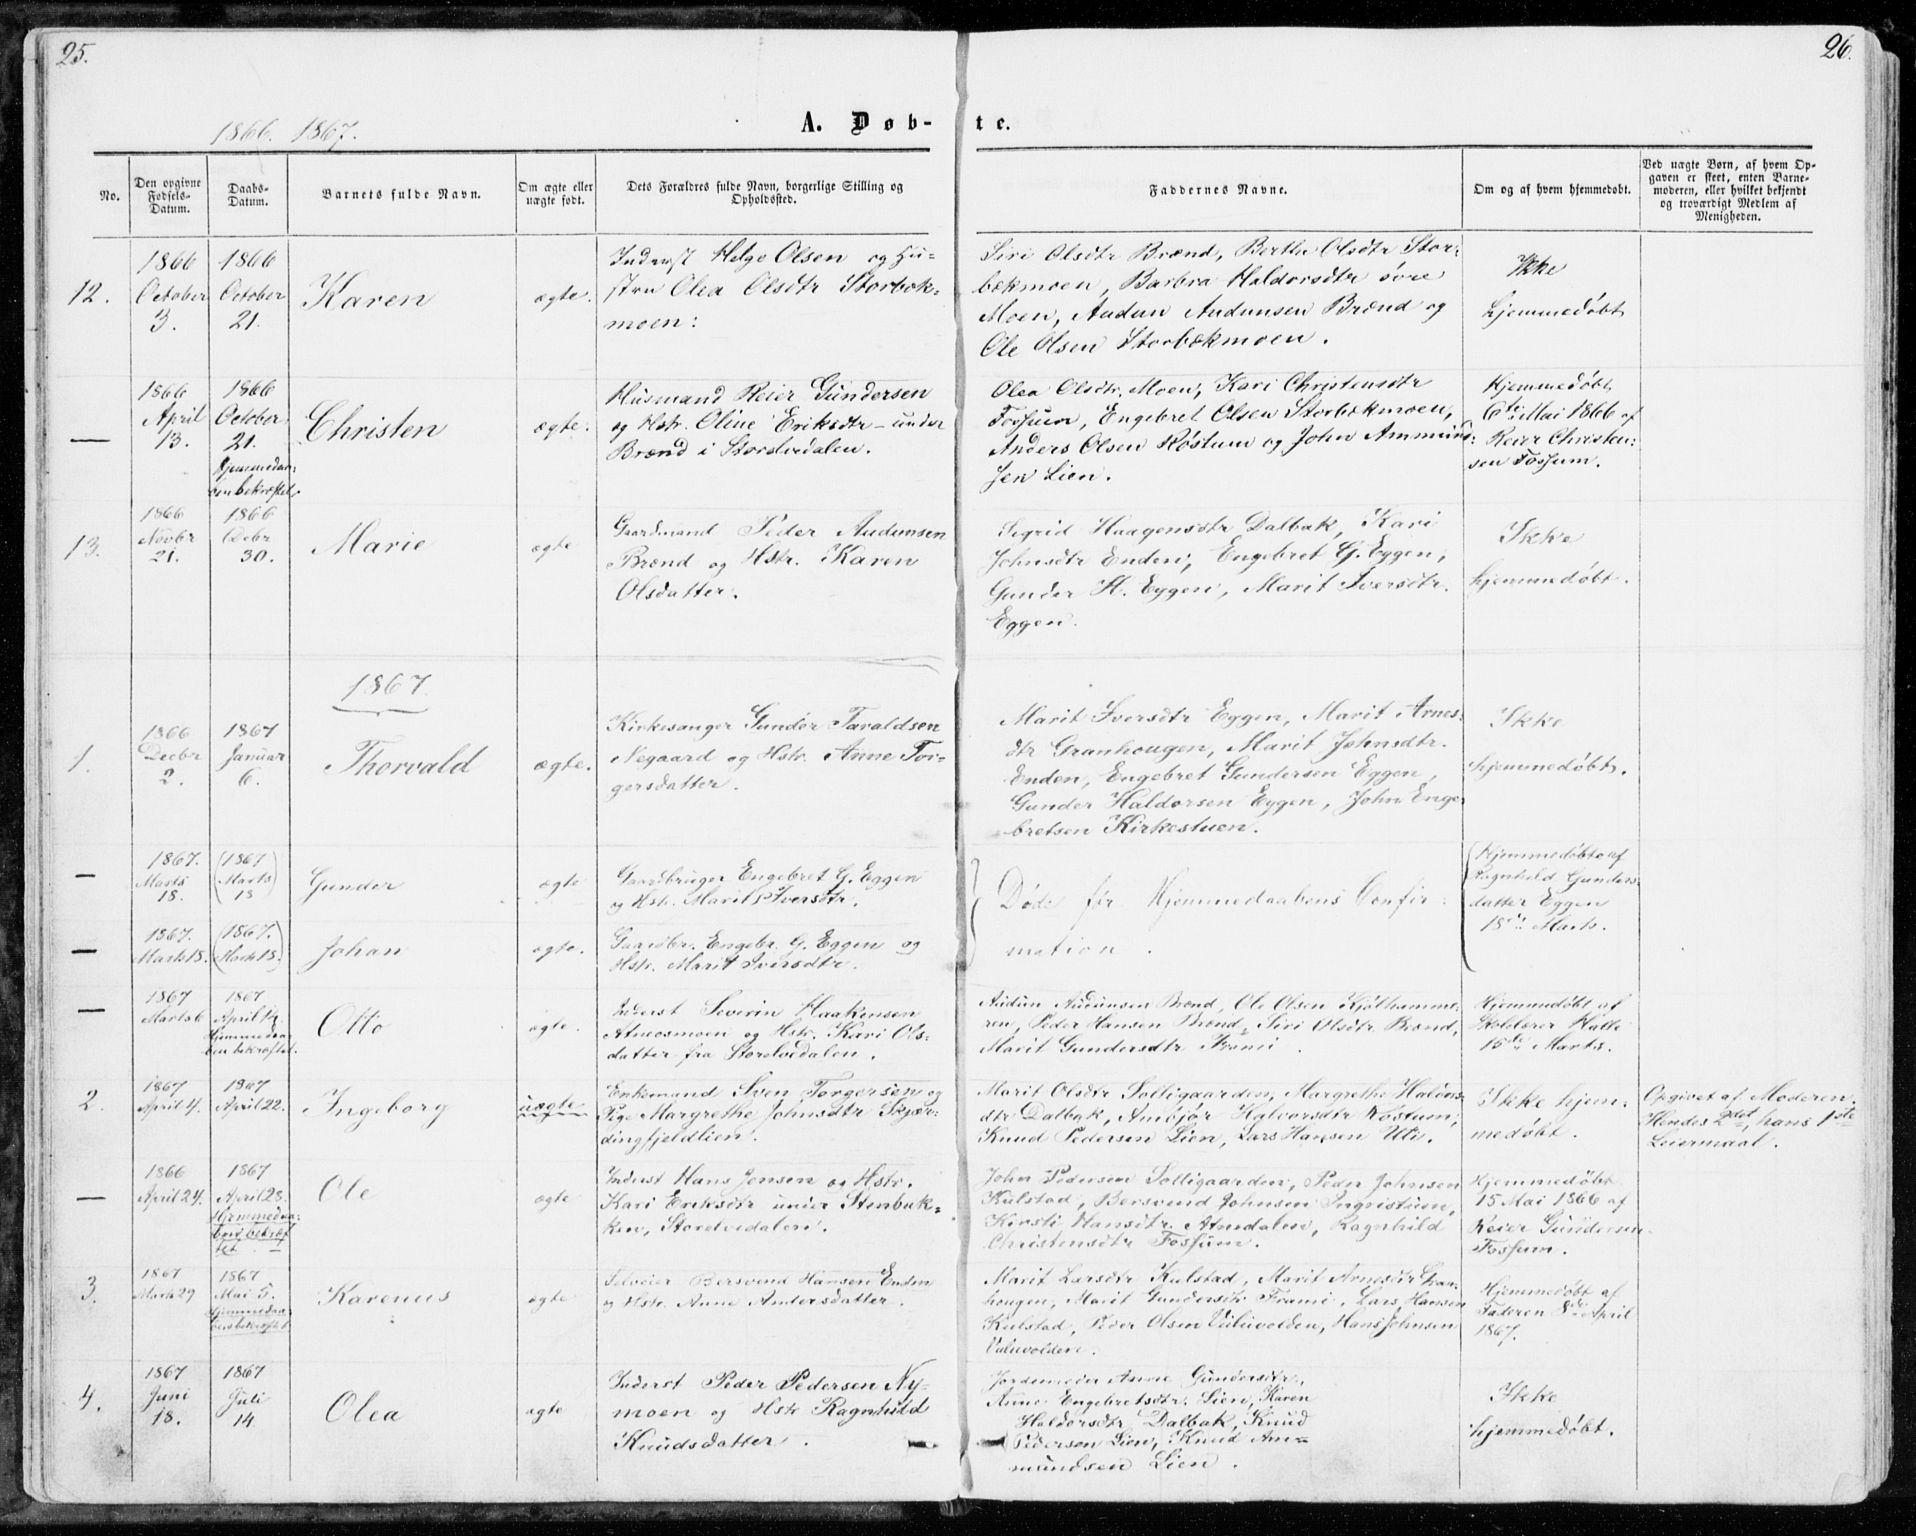 25.
26.
1866. 1867.
A. Døb-
te.
No.
Den opgivne
Fødsels-
Datum.
Daabs-
Datum.
Barnets fulde Navn.
Om ægte eller
uægte født.
Dets Forældres fulde Navn, borgerlige Stilling og
Opholdssted.
Faddernes Navne.
Om og af hvem hjemmedøbt.
Ved uægte Børn, af hvem Op-
gaven er skeet, enten Barne-
moderen, eller hvilket bekjendt
og troværdigt Medlem af
Menigheden.
12.
1866
October
3.
1866
October
21.
Karen
ægte.
Inderst Helge Olsen og Hu-
stru Olea Olsdtr Storbæk-
moen:
Siri Olsdtr Brænd, Berthe Olsdtr Stor-
bækmoen, Barbra Haldorsdtr søre
Moen, Audun Audunsen Brænd og
Ole Olsen Storbækmoen.
Ikke
hjemmedøbt
—
1866
April
13.
1866
October
21.
Hjemmedaa-
ben bekræftet.
Christen
ægte.
Husmand Reier Gundersen
og Hstr. Oline Eriksdtr - under
Brænd i Storelvedalen.
Olea Olsdtr. Moen, Kari Christensdtr
Fossum, Engebret Olsen Storbækmoen,
Anders Olsen Røstum og John Ammund-
sen Lien.
Hjemmedøbt
6te Mai 1866 af
Reier Christen-
sen Fossum.
13.
1866
Novbr
21.
1866
Debr
30.
Marie
ægte
Gaardmand Peder Audunsen
Brænd og Hstr. Karen
Olsdatter.
Sigrid Haagensdtr Dalbak, Kari
Johnsdtr Enden, Engebret G. Eggen,
Gunder H. Eggen, Marit Iversdtr.
Eggen.
Ikke
hjemmedøbt.
1867.
1.
1866
Decbr
2.
1867
Januar
6.
Thorvald
ægte.
Kirkesanger Gunder Taraldsen
Negaard og Hstr. Anne Tor-
gersdatter.
Marit Iversdtr Eggen, Marit Arnes-
dtr Granhougen, Marit Johnsdtr.
Enden, Engebret Gundersen Eggen,
Gunder Haldorsen Eggen, John Enge-
bretsen Kirkestuen.
Ikke
hjemmedøbt.
—
1867.
Marts
18.
(1867
Marts
18)
Gunder
ægte
Gaardbruger Engebret G. Eggen
og Hstr. Marit Iversdtr.
Døde før Hjemmedaabens Confir-
mation.
Hjemmedøbte af
Ragnhild Gunders-
datter Eggen
18de Marts.
—
1867.
Marts 18.
(1867.
Marts 18.)
Johan
ægte.
Gaardbr. Engebr. G. Eggen og
Hstr. Marit Iversdtr.
—
1867
Marts 6
1867
April 14.
Hjemmedaa-
ben bekræftet.
Otto
ægte.
Inderst Severin Haakensen
Atneosmoen og Hstr. Kari Ols-
datter fra Storelvedalen.
Audun Audunsen Brænd, Ole Olsen Kjølhamme-
ren, Peder Hansen Brænd, Siri Olsdtr Brænd,
Marit Gundersdtr Frami.
Hjemmedøbt af
Skolelærer Halle
16de Marts.
2.
1867
April 4.
1867
April 22.
Ingeborg
uægte
Enkemand Sven Torgersen og
Pige Margrethe Johnsdtr Skjær-
dingfjeldlien.
Marit Olsdtr Solligaarden, Margrethe Haldors-
dtr Dalbak, Ambjør Halvorsdtr Røstum,
Knud Pedersen Lien, Lars Hansen Uti.
Ikke hjem-
medøbt.
Opgivet af Moderen.
Hendes 2det, hans 1ste
Leiermaal.
—
1866
April 24.
1867
April 23.
Hjemmedaa-
ben bekræf-
tet.
Ole
ægte
Inderst Hans Jensen og Hstr.
Kari Eriksdtr under Stenbæk-
ken, Storelvedalen.
John Pedersen Solligaarden, Peder Johnsen
Kulstad, Bersvend Johnsen Ingvistuen,
Kirsti Hansdtr. Atnedalen, Ragnhild
Christensdtr Fossum.
Hjemmedøbt
15 Mai 1866 af
Reier Gundersen
Fossum.
3.
1867
Marts 29
1867
Mai 5.
Hjemmedaa-
ben bekræftet
Karenus
ægte
Selveier Bersvend Hansen Enden
og Hstr. Anne Andersdatter.
Marit Larsdtr Kulstad, Marit Arnesdtr Gran-
hougen, Marit Gundersdtr Frami, Lars Hansen
Kulstad, Peder Olsen Uuluvolden, Hans Johnsen
Uuluvolden.
Hjemmedøbt af
Faderen 8de April
1867.
4.
1867
Juni
18.
1867
Juli
14.
Olea
ægte
Inderst Peder Pedersen Ny-
moen og Hstr Ragnhild
Knudsdatter.
Jordemoder Anne Gundersdtr.,
Anne Engebretsdtr. Lien, Karen
Haldorsdtr Dalbak, Knud
Pedersen Lien, Knud Am-
mundsen Lien.
Ikke
hjemmedøbt.